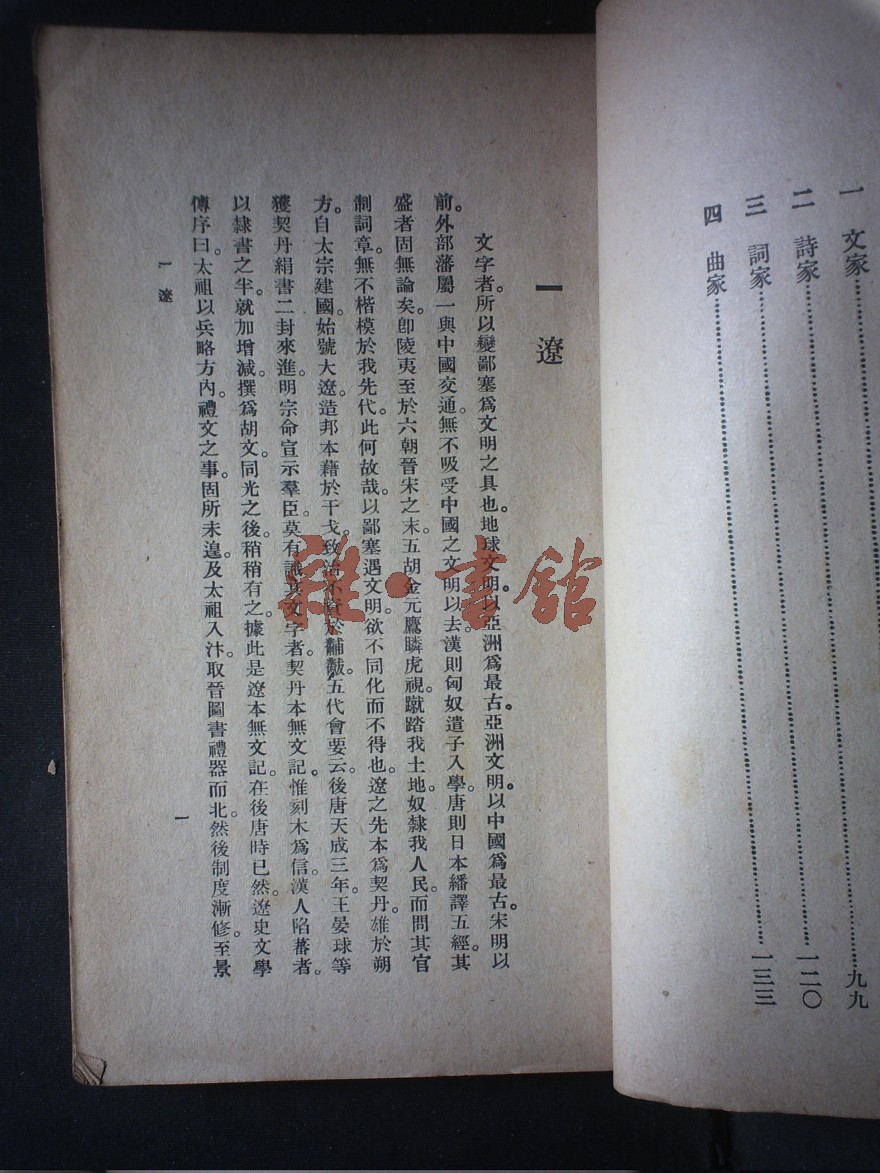 一　文家……九九
二　詩家……一二〇
三　詞家……一三三
四　曲家……
一　遼
文字者。所以變鄙塞爲文明之具也。地球文明。以亞洲爲最古。亞洲文明。以中國爲最古。宋明以
前。外部藩屬。一與中國交通。無不吸受中國之文明以去。漢則匈奴遣子入學。唐則日本繙譯五經。其
盛者固無論矣。卽陵夷至於六朝晉宋之末。五胡金元。鷹瞵虎視。蹴踏我土地。奴隸我人民。而問其官
制詞章。無不楷模於我先代。此何故哉。以鄙塞遇文明。欲不同化而不得也。遼之先本爲契丹。雄於朔
方。自太宗建國。始號大遼。造邦本藉於干戈。致治不資於黼黻。五代會要云。後唐天成三年。王晏球等
獲契丹絹書二封來進。明宗命宣示羣臣。莫有識其文字者。契丹本無文記。惟刻木爲信。漢人陷蕃者。
以隸書之半。就加增減。撰爲胡文。同光之後。稍稍有之。據此是遼本無文記。在後唐時已然。遼史文學
傳序曰。太祖以兵略方內。禮文之事。固所未遑。及太祖入汴。取晉圖書禮器而北。然後制度漸修。至景
一　遼
一
雜·書館